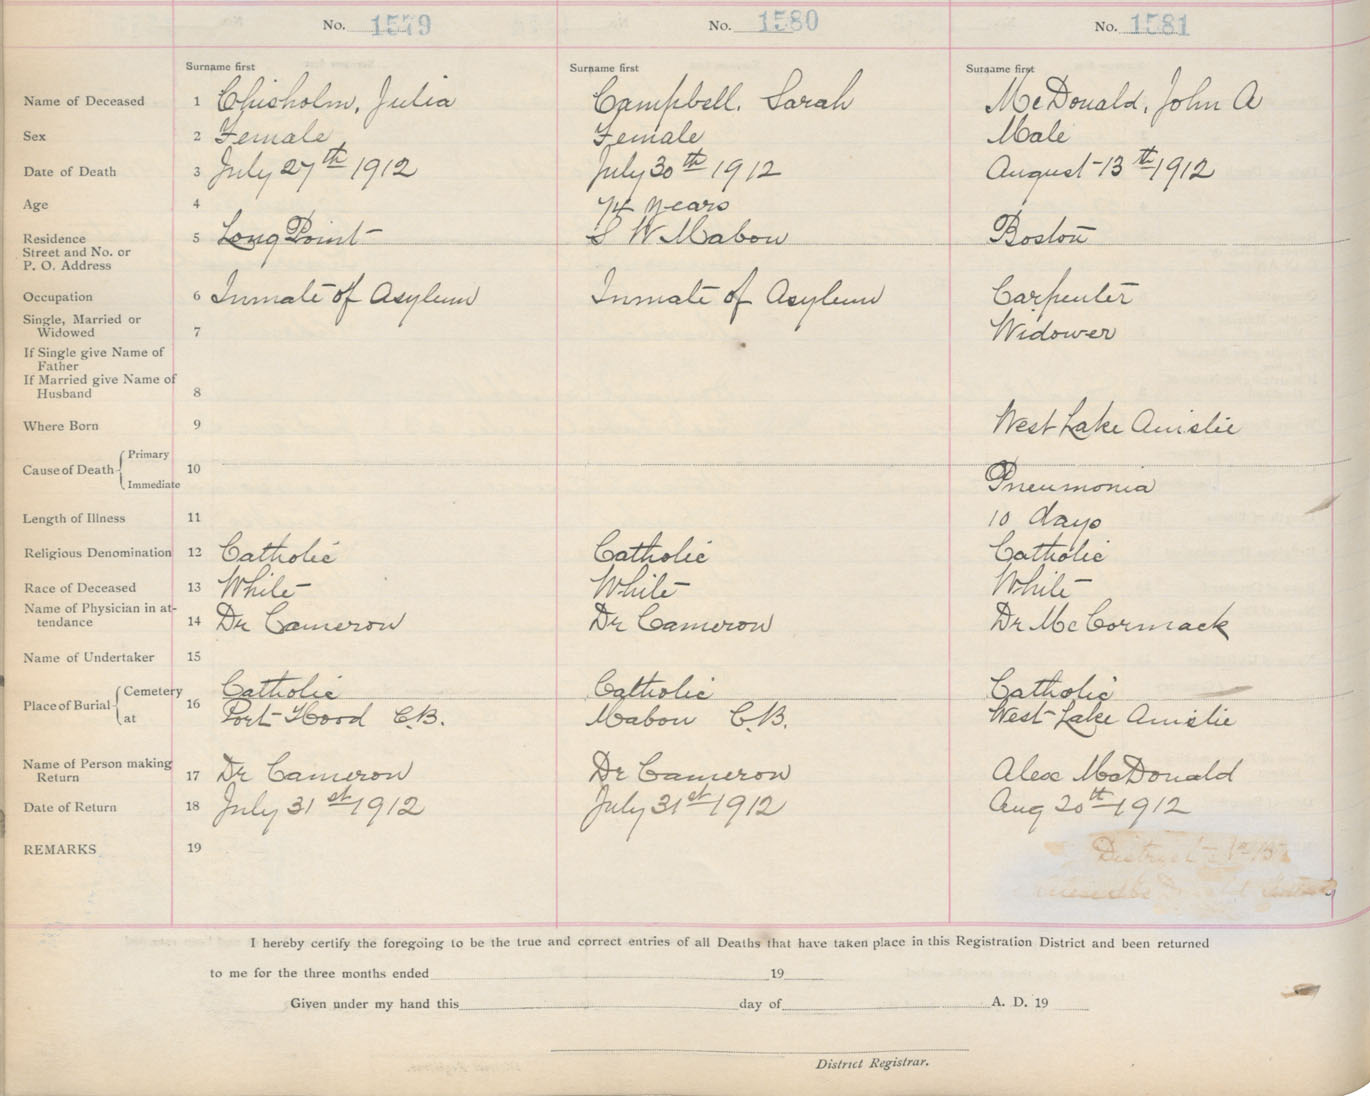 No. 1579 No. 1580 No. 1581
Surname first Surname first Surname first
Name of Deceased 1 Chisholm, Julia Campbell, Sarah McDonald, John A
Sex 2 Female Female Male
Date of Death 3 July 27th 1912 July 30th 1912 August 13th 1912
Age 4 74 years
Residence 5 Long Point S W Mabou Boston
Street and No. or
P. O. Address
Occupation 6 Inmate of Asylum Inmate of Asylum Carpenter
Single, Married or
Widowed 7 Widower
If Single give Name of
Father
If Married give Name of
Husband 8
Where Born 9 West Lake Ainslie
Cause of Death { Primary
10
Immediate Pneumonia
Length of Illness 11 10 days
Religious Denomination 12 Catholic Catholic Catholic
Race of Deceased 13 White White White
Name of Physician in at-
tendance 14 Dr Cameron Dr Cameron Dr McCormack
Name of Undertaker 15
Place of Burial { Cemetery 16 Catholic Catholic Catholic
at Port Hood C.B. Mabou C.B. West Lake Ainslie
Name of Person making
Return 17 Dr Cameron Dr Cameron Alex McDonald
Date of Return 18 July 31st 1912 July 31st 1912 Aug 20th 1912
REMARKS 19 District
I hereby certify the foregoing to be the true and correct entries of all Deaths that have taken place in this Registration District and been returned
to me for the three months ended 19
Given under my hand this day of A. D. 19
District Registrar.